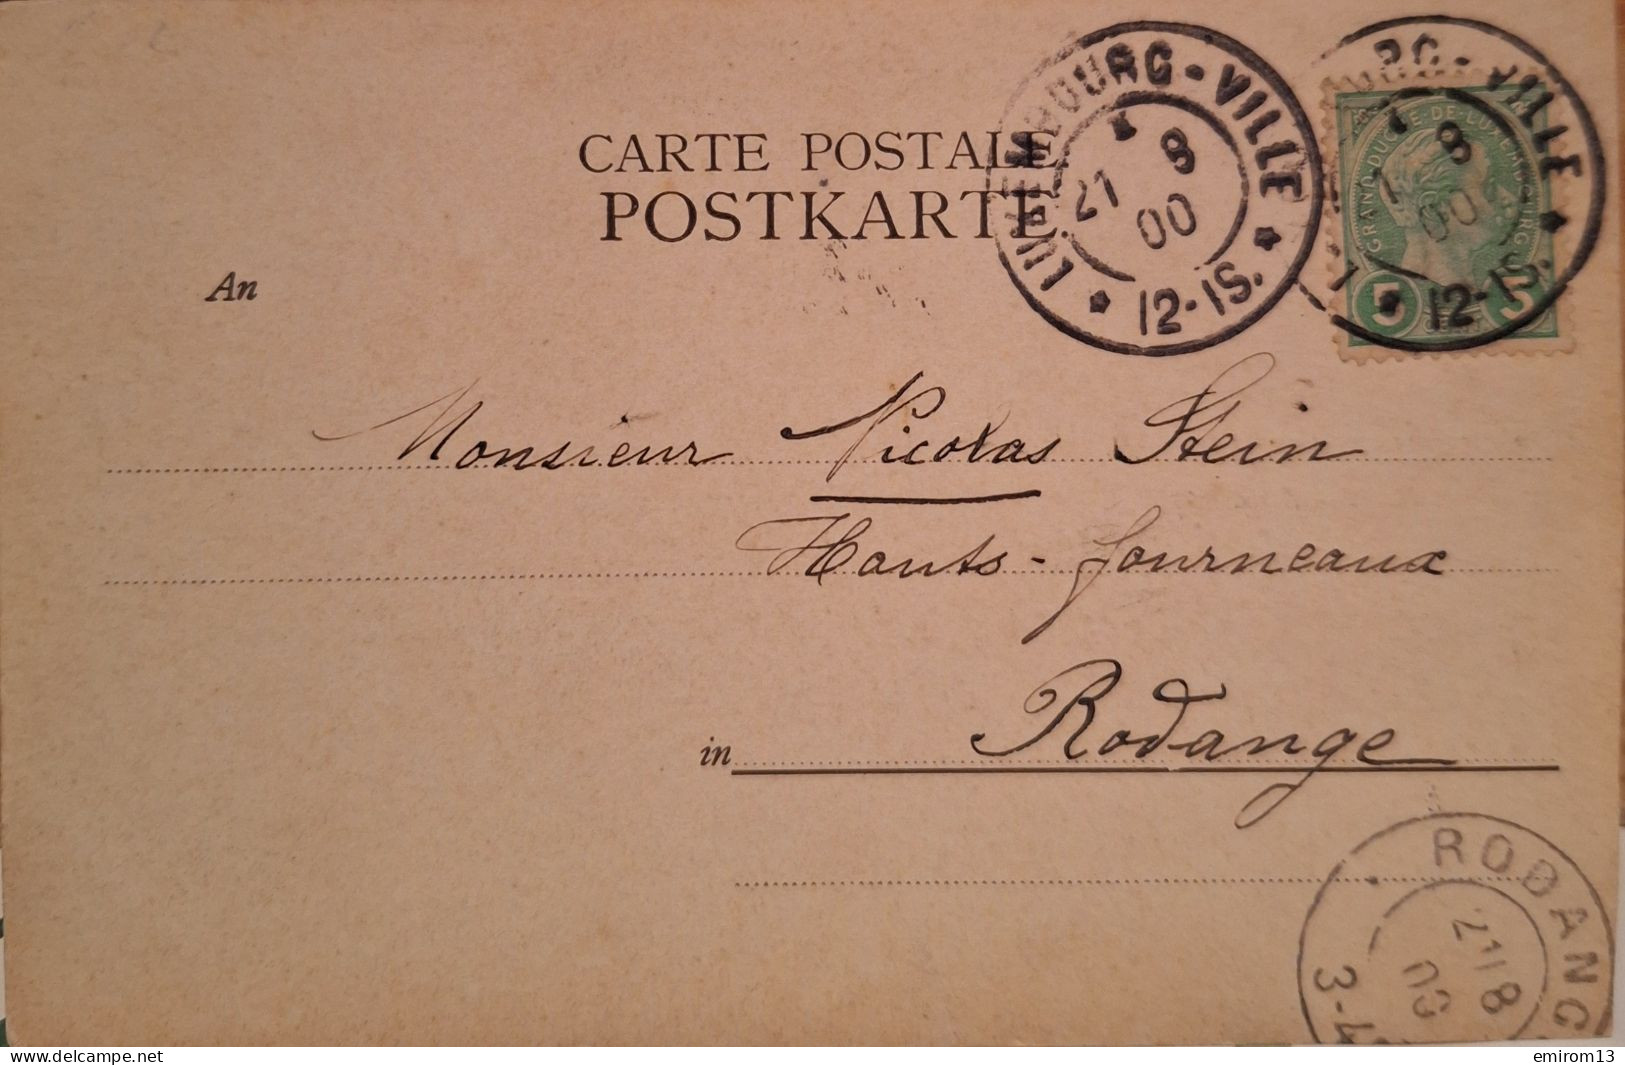 CARTE POSTALE
POSTKARTE
LUXEMBOURG-VILLE
21 8
00
12-1S.
RG-VILLE
8
00
12-1S.
GRAND DUCHE DE LUXEMBOURG
5 5
An
Monsieur Nicolas Stein
Hauts-fourneaux
in Rodange
RODANG
21 8
00
3-4
delcampe.net
emirom13